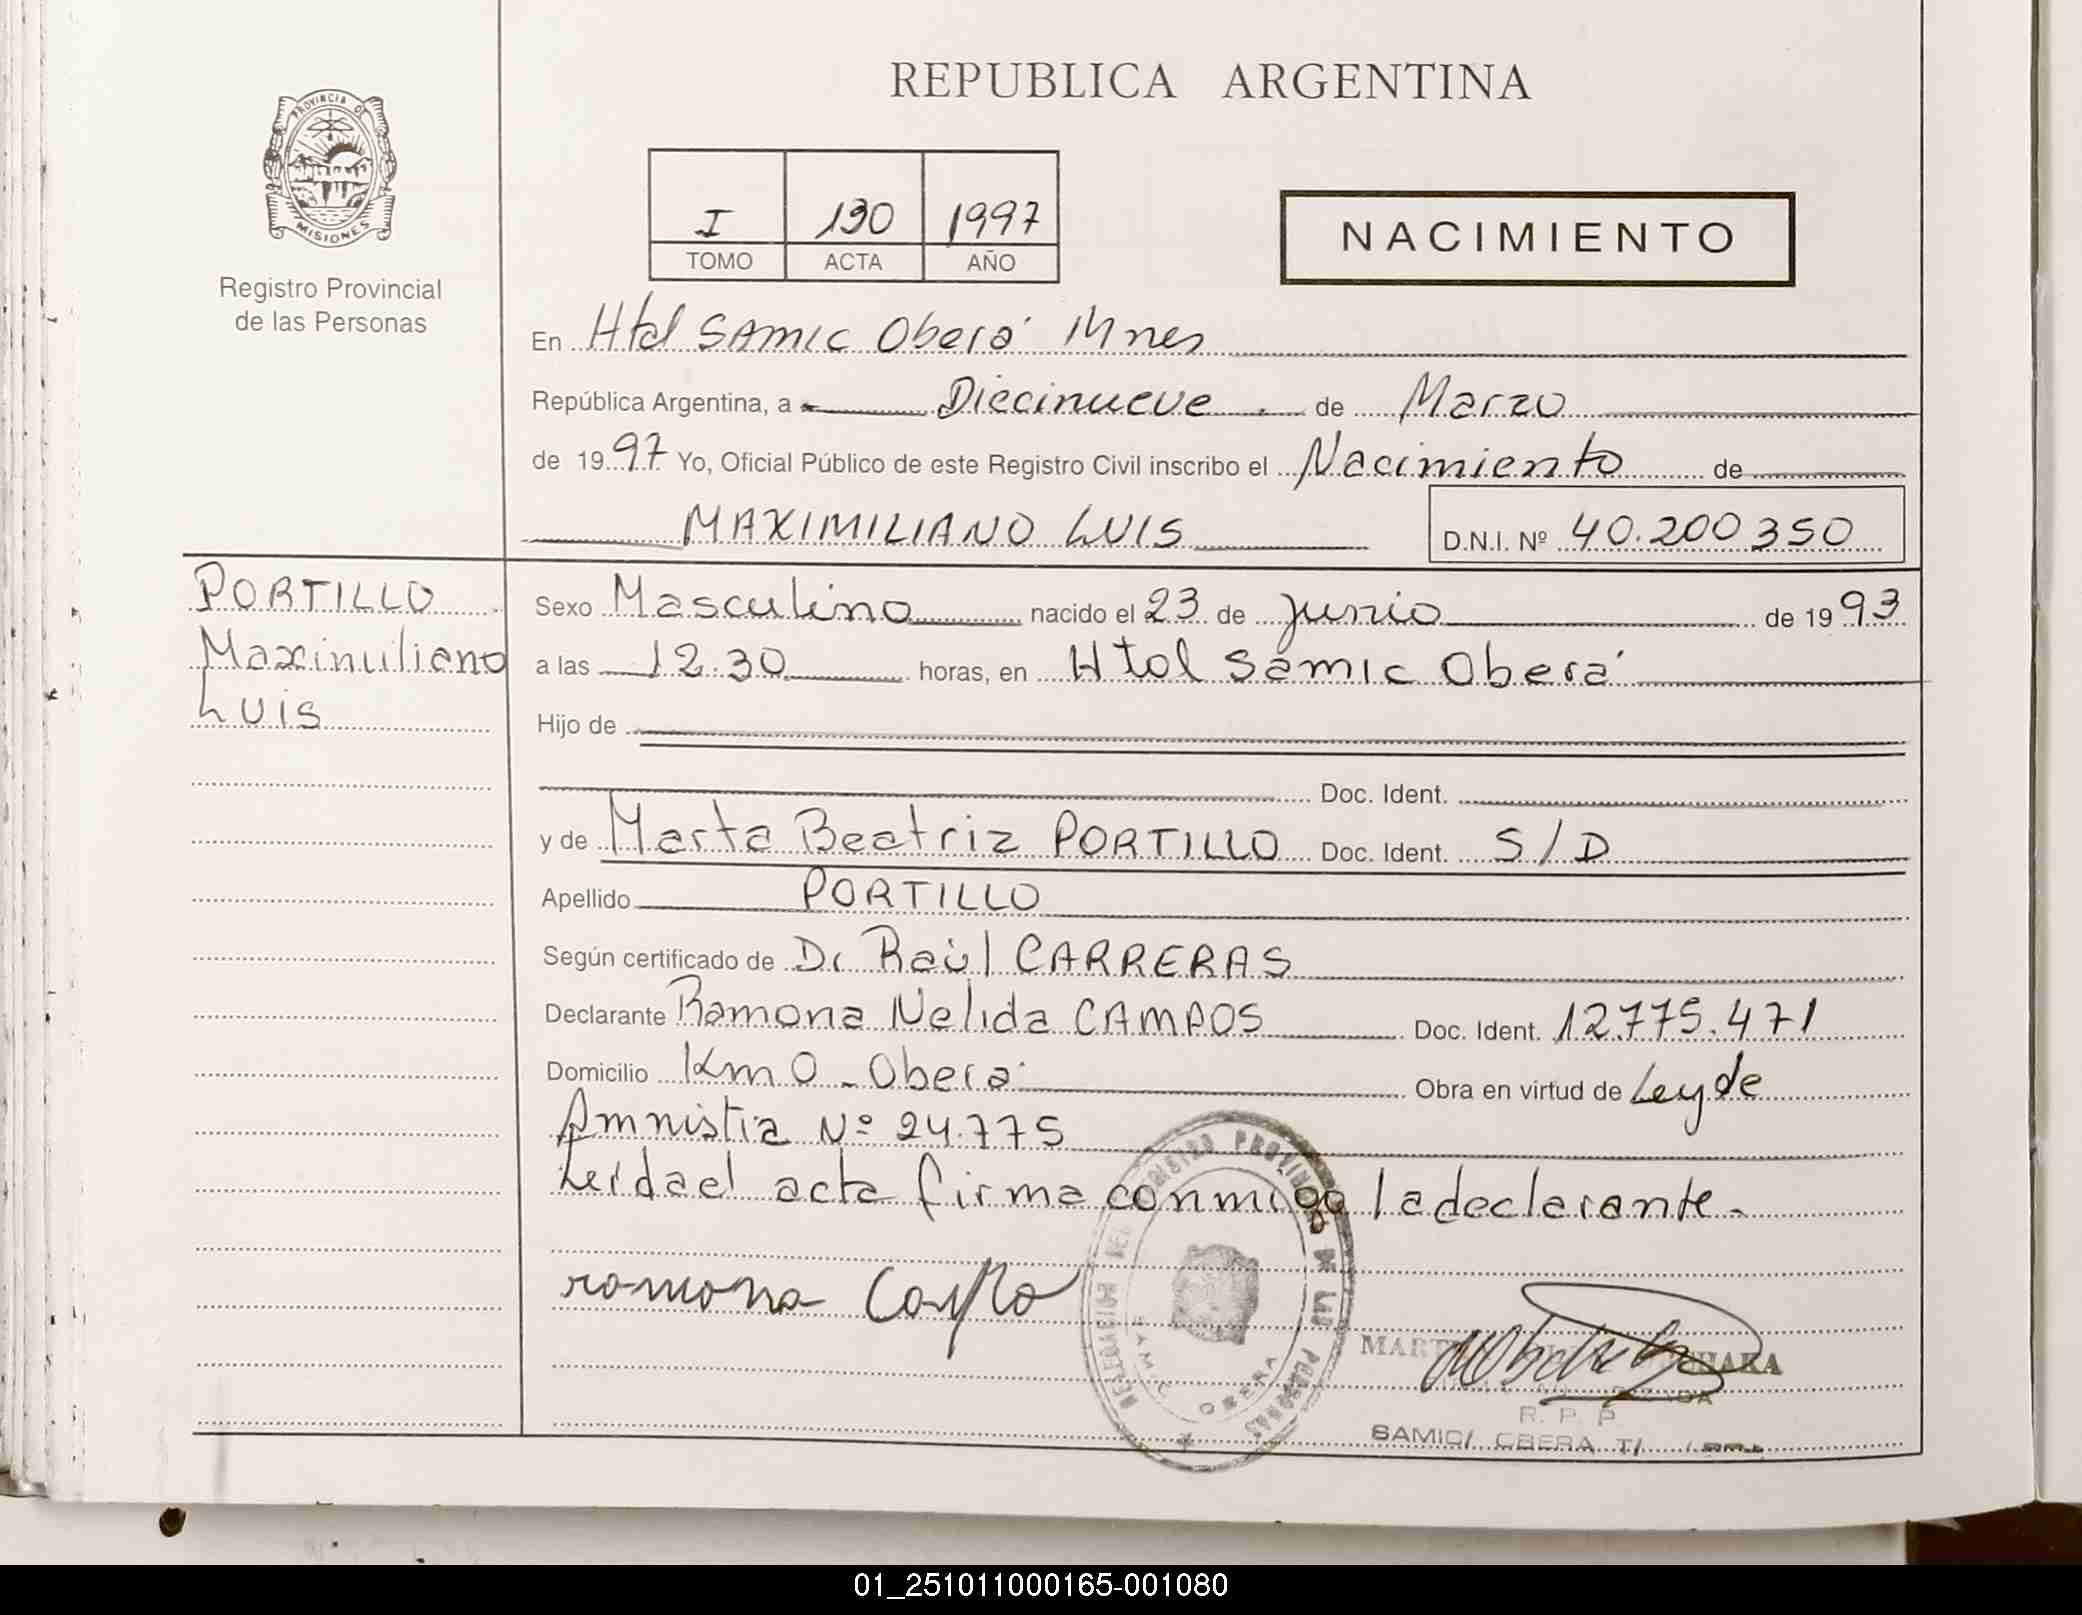 REPUBLICA ARGENTINA
PROVINCIA DE
MISIONES
Registro Provincial
de las Personas
I 130 1997
TOMO ACTA AÑO
NACIMIENTO
En Htal SAMIC Oberá Mnes
República Argentina, a Diecinueve de Marzo
de 1997 Yo, Oficial Público de este Registro Civil inscribo el Nacimiento de
MAXIMILIANO LUIS D.N.I. Nº 40.200350
PORTILLO
Maximiliano
Luis
Sexo Masculino nacido el 23 de junio de 1993
a las 12.30 horas, en Htal Samic Oberá
Hijo de
Doc. Ident.
y de Marta Beatriz PORTILLO Doc. Ident. S/D
Apellido PORTILLO
Según certificado de Dr Raúl CARRERAS
Declarante Ramona Nelida CAMPOS Doc. Ident. 12.775.471
Domicilio Km 0 - Oberá Obra en virtud de Ley de
Amnistia Nº 24.775
Leida el acta firma conmigo la declarante.
ramona
DELEGACION DEL REGISTRO PROVINCIAL DE LAS PERSONAS
SAMIC OBERA
R. P. P
SAMIC/ OBERA
01_251011000165-001080